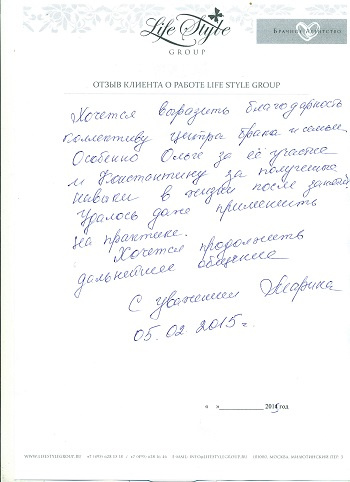 Life Style
GROUP
БРАЧНОЕ АГЕНТСТВО
ОТЗЫВ КЛИЕНТА О РАБОТЕ LIFE STYLE GROUP
Хочется выразить благодарность
коллективу центра брака и семьи.
Особенно Ольге за её участие
и Константину за полученые
навыки в жизни после занятий
Удалось даже применить
на практике.
Хочется продолжить
дальнейшее общение
С уважением Марина
05.02 2015 г.
« » 2015 год
WWW.LIFESTYLEGROUP.RU +7 (495) 628 15 10 E-MAIL: INFO@LIFESTYLEGROUP.RU МОСКВА